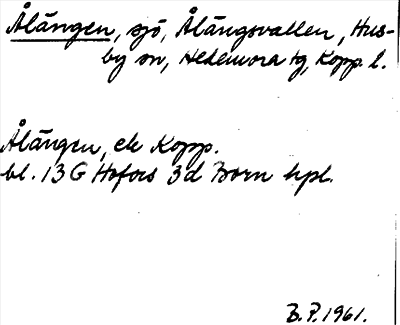 Ålängen, sjö, Ålängsvallen, Hus-
by sn, Hedemora tg, Kopp. l.
Ålängen, ek Kopp.
bl. 13 G Hofors 3d Born hpl.
B.P. 1961.